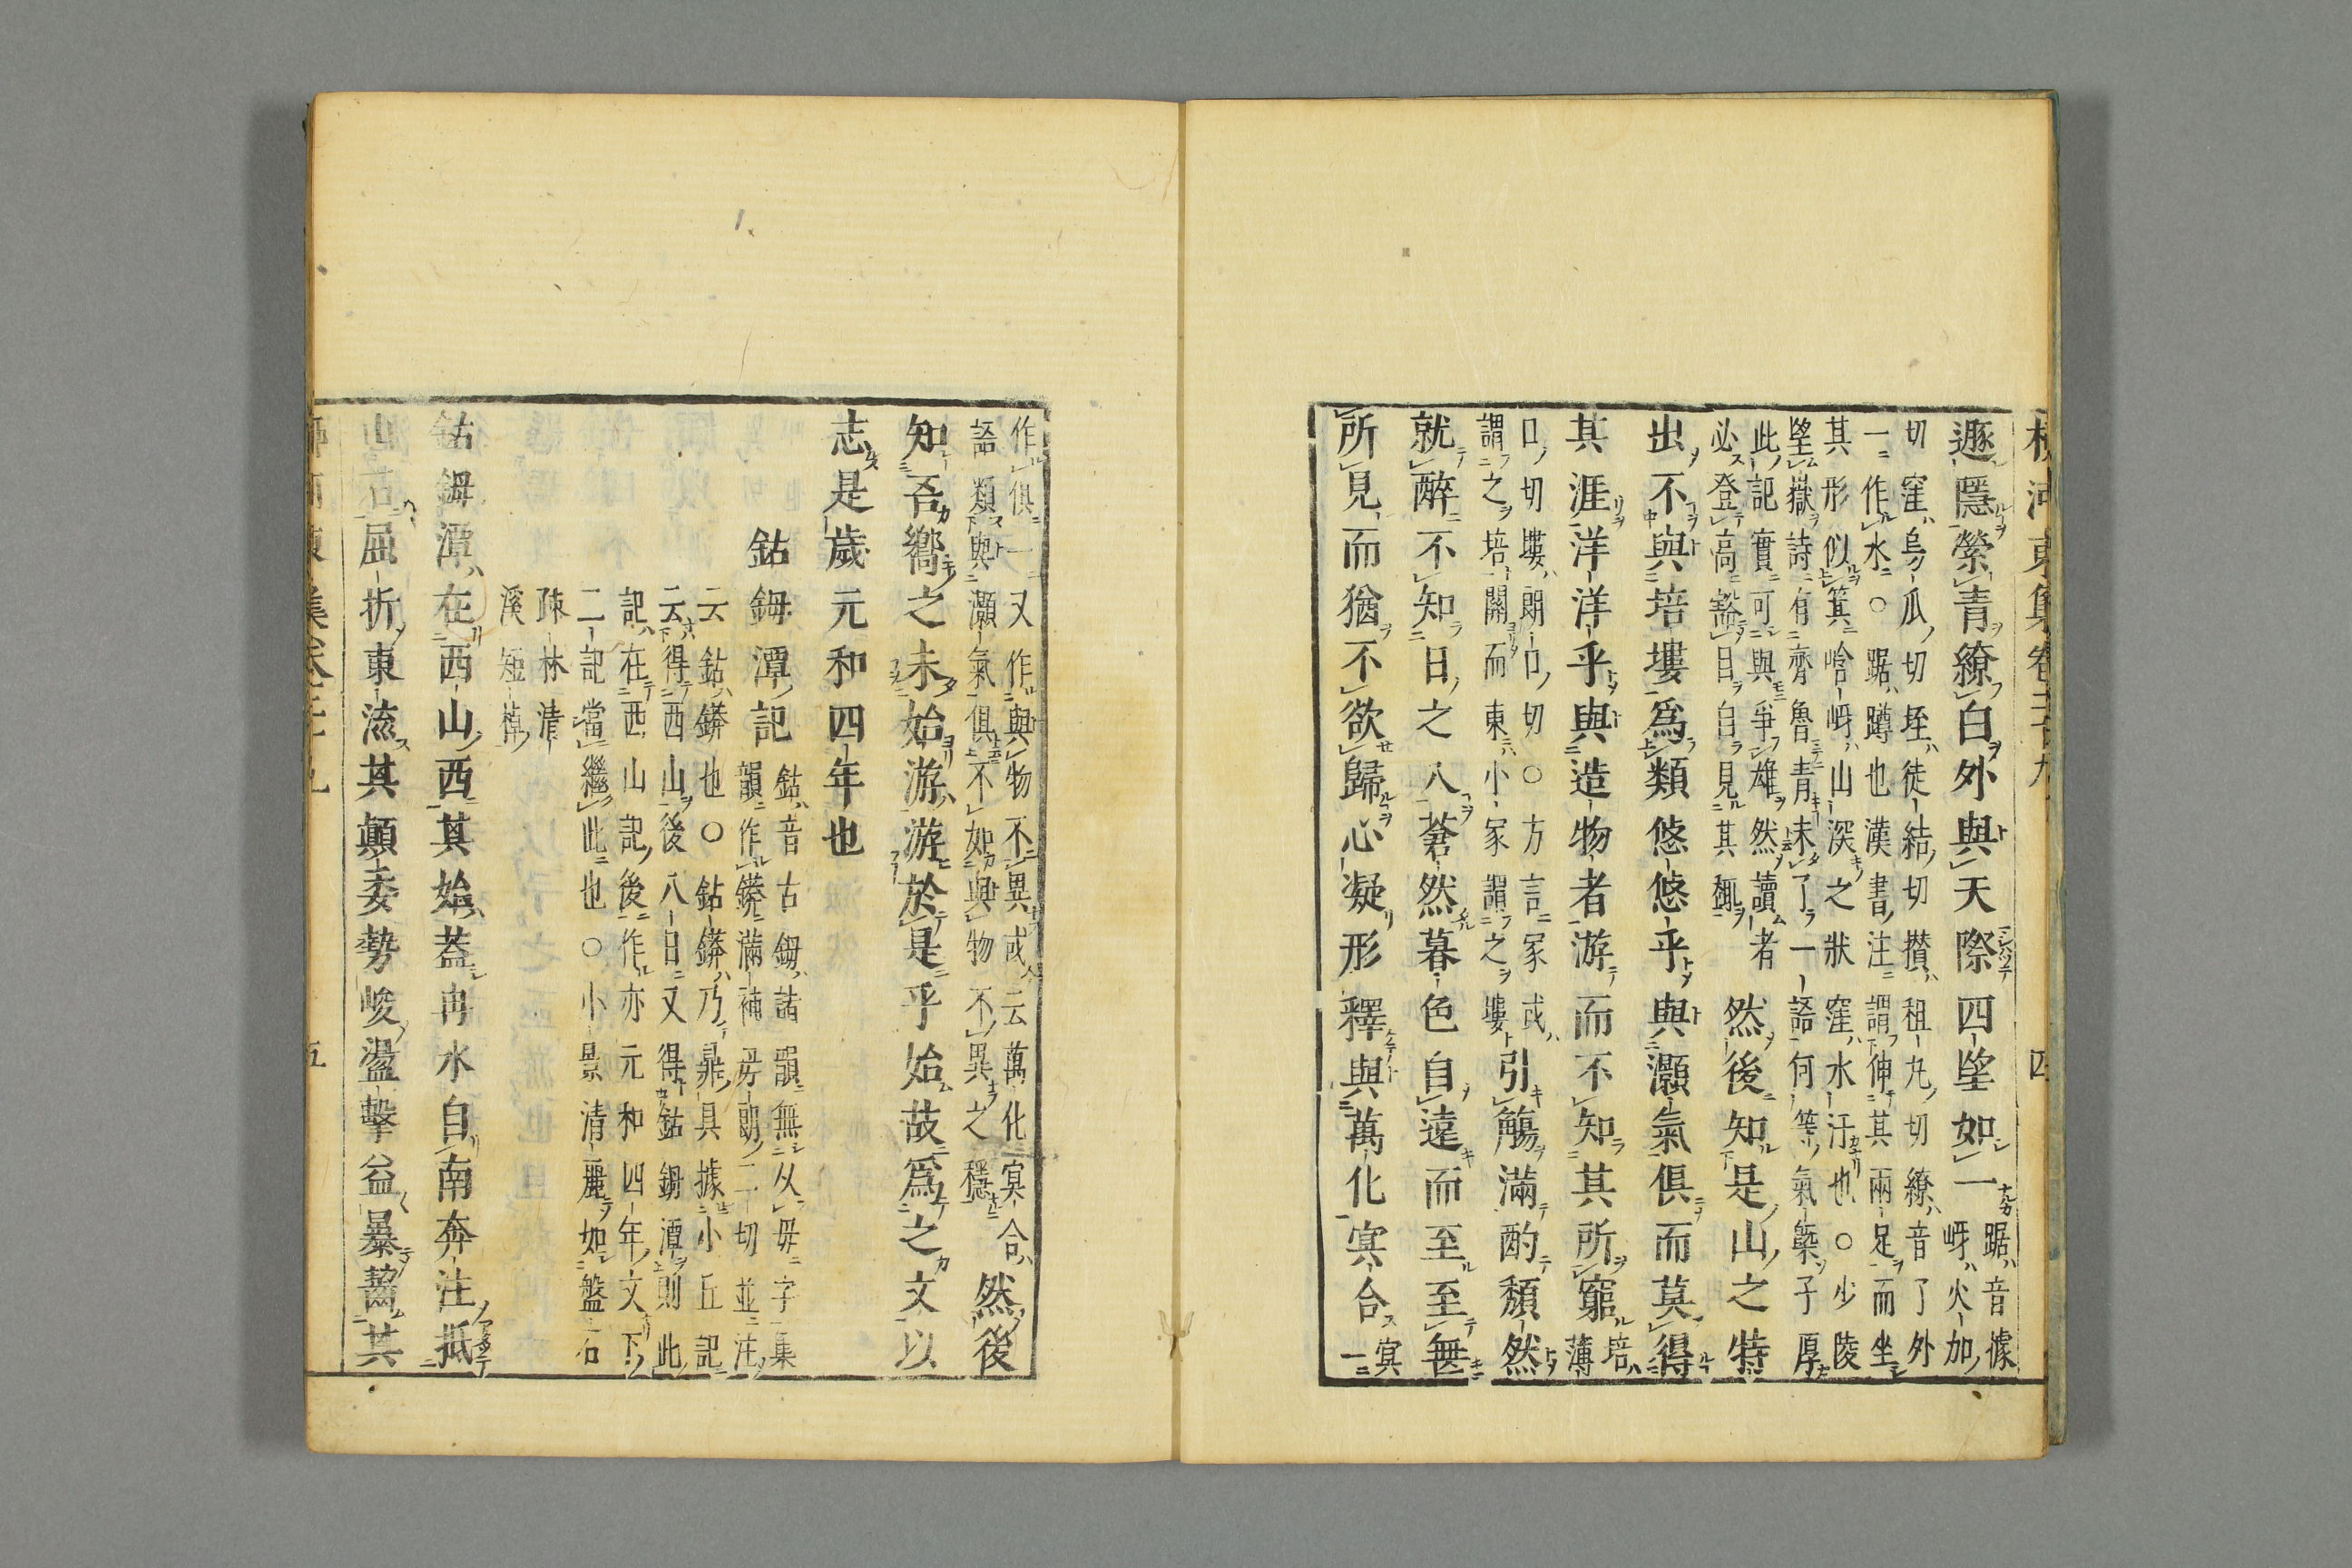 柳河東集卷二十九 四
遯隱縈青繚白外與天際四望如一
踞音據
岈火加
切窪烏瓜切垤徒結切攢租丸切繚音了外
一作水○踞蹲也漢書注謂伸其兩足而坐
其形似箕唅岈山深之狀窪水汙也○少陵
望嶽詩有齊魯青未了一語何等氣槩子厚
此記實可與爭雄然讀者
必登高豁目自見其概
然後知是山之特
出不與培塿爲類悠悠乎與灝氣俱而莫得
其涯洋洋乎與造物者游而不知其所窮
培
薄
口切塿朗口切○方言冢或
謂之培關而東小冢謂之塿
引觴滿酌頹然
就醉不知日之入蒼然暮色自遠而至至無
所見而猶不欲歸心凝形釋與萬化㝠合
㝠
一
作俱一又作與物不異或云萬化㝠合
語類與灝氣俱不如與物不異之穩
然後
知吾嚮之未始游游於是乎始故爲之文以
志是歲元和四年也
鈷鉧潭記
鈷音古鉧諸韻無从毋字集
韻作䥈滿補毋朗二切並注
云鈷䥈也○鈷䥈乃鼎具據小丘記
云得西山後八日又得鈷鉧潭則此
記在西山記後作亦元和四年文下
二記當繼此也○小景清麗如盤石
疎林清
溪短棹
鈷鉧潭在西山西其始蓋冉水自南奔注抵
山石屈折東流其顛委勢峻盪擊益暴齧其
柳河東集卷二十九 五